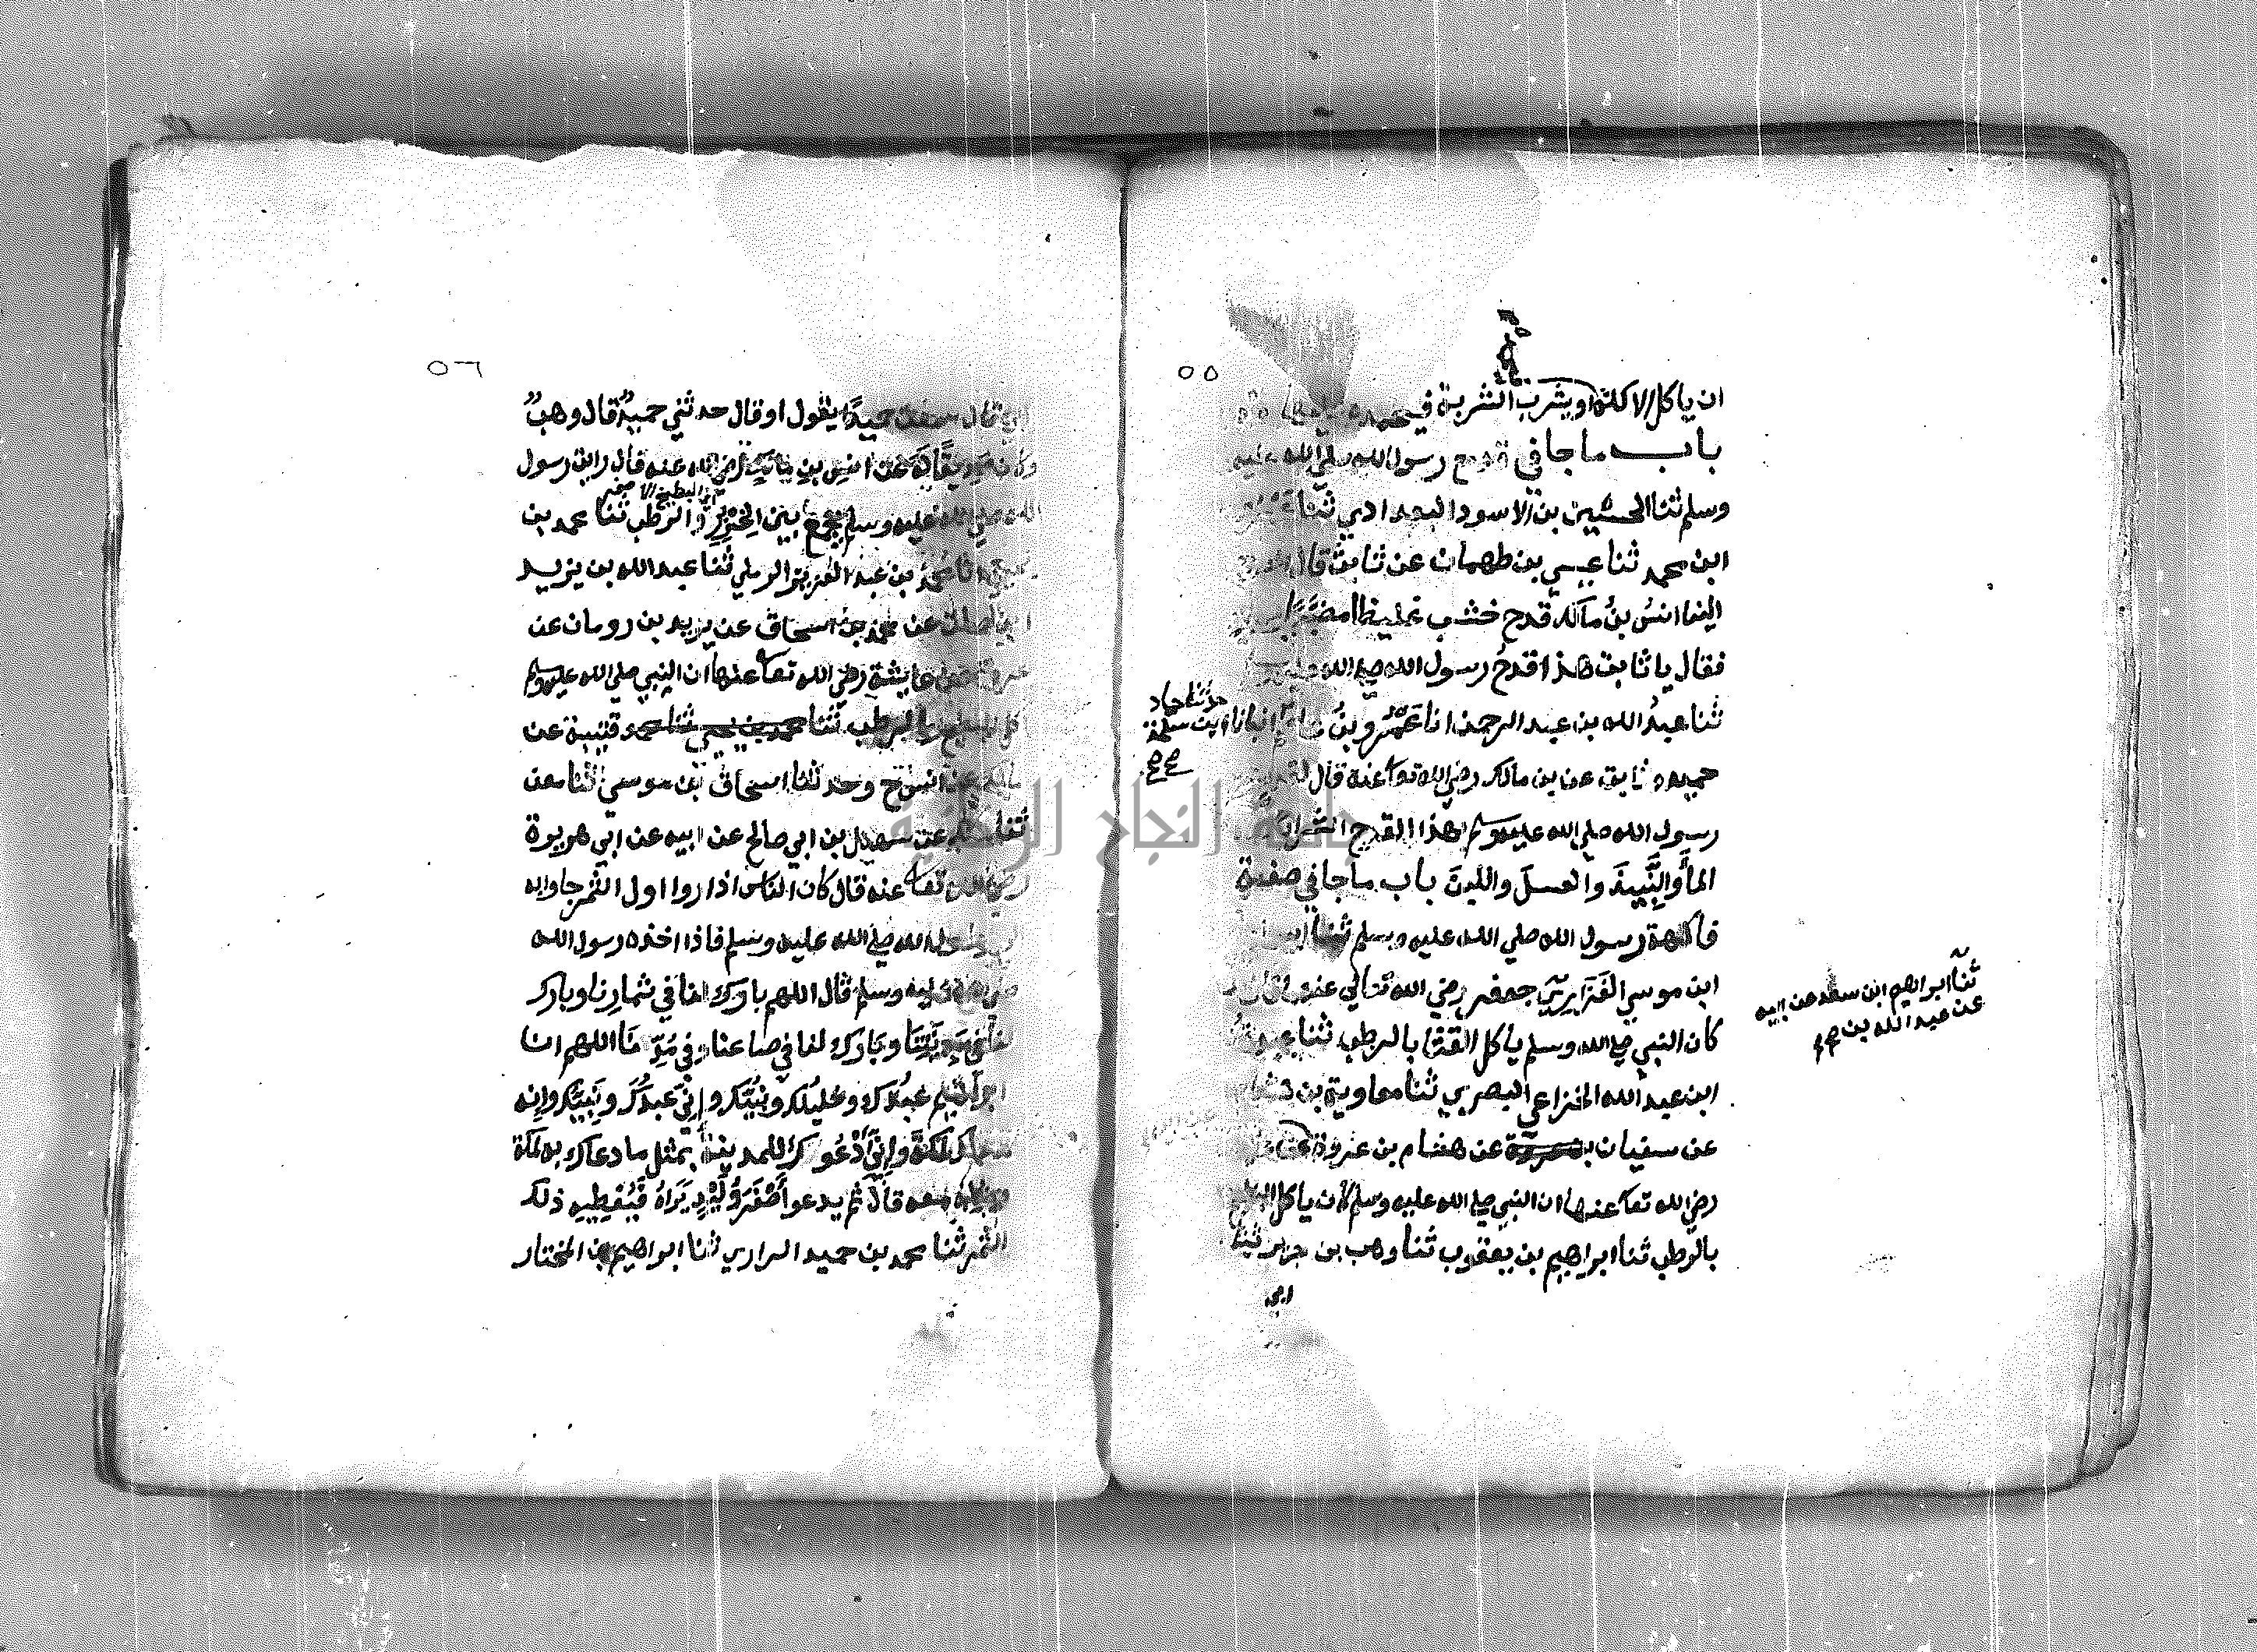 ٥٥
ان ياكل الاكلة او يشرب الشربة في
باب ما جا في قدح رسول الله صلي الله عليه
وسلم ثنا الحسين بن الاسود البغدادي ثنا
ابن محمد ثنا عيسي بن طهمان عن ثابت قال
الينا انسُ بنُ مالك قدح خشب غليظا مضببا
فقال يا ثابت هذا قدحُ رسول الله صلي الله
ثنا عبدُ الله بن عبد الرحمن انا عَمْرو بنُ انبانا
حدثنا حماد
بن سلمة
صح
حميد و ثابت عن بن مالك رضي الله تعا عنه قال
رسول الله صلي الله عليه وسلم بهذا القدح الشراب
المأَ والنَّبِيذَ والعسلَ واللبنَ باب ما جا في صفة
فاكهة رسول الله صلي الله عليه وسلم ثنا
ابن موسي الفَزَاريّ جعفر رضي الله تعالي عنه قال
ثنا ابراهيم ابن سعد عن ابيه
عن عبد الله بن صح
كان النبي صلي الله وسلم ياكل القثا بالرطب ثنا عبدة
ابن عبد الله الخزاعي البصري ثنا معاوية بن
عن سفيان عن هشام بن عروة عن
رضي الله تعا عنها ان النبي صلي الله عليه وسلم كان ياكل البطيخ
بالرطب ثنا ابراهيم بن يعقوب ثنا وهب بن جرير ثنا
ابي
٥٦
ابي قال سمعت حميدًا يقول او قال حدثني حميدٌ قال وهبٌ
وكان صديقًا لَهُ عن انسِ بنِ مالِكٍ رضي الله عنه قال رايت رسول
الله صلي الله عليه وسلم يجمع بين الخِرْبِزِ والرطب ثنا محمد بن
اي البطيخ الاصفر
يحيي انا محمدُ بن عبد العزيز الرملي ثنا عبد الله بن يزيد
ابن الصلت عن محمد بن اسحاق عن يزيد بن رومان عن
عروة عن عايشة رضي الله تعا عنها ان النبي صلي الله عليه وسلم
اكل البطيخ بالرطب ثنا محمد بن يحيي ثنا محمد قتيبة عن
مالك عن انس ح وحدثنا اسحاق بن موسي ثنا معن
ثنا مالك عن سهيل بن ابي صالح عن ابيه عن ابي هريرة
رضي الله تعا عنه قال كان الناس اذا روا اول الثمر جاوا به
الي رسول الله صلي الله عليه وسلم فاذا اخذه رسول الله
صلي الله عليه وسلم قال اللهم بارك لنا في ثمارِنا وبارك
لنا في مَدِينَتِنَا وبَارك لنا في صاعنا وفي مُدِّنَا اللهم ان
ابراهيم عبْدُك وخليلُك ونبيُّك وإنِّي عبدُكَ ونَبِيُّك وإِنه
دعاك لمكةَ وإِنِّي أَدْعُوكَ للمدينة بمثل ما دعاك به لمكة
ومثله معه قال ثم يدعو أَصْغَرَ وَلِيدٍ يَرَاهُ فَيُعْطِيهِ ذلك
الثمر ثنا محمد بن حميد الرازي ثنا ابراهيم بن المختار
جامعة النجاح الوطنية